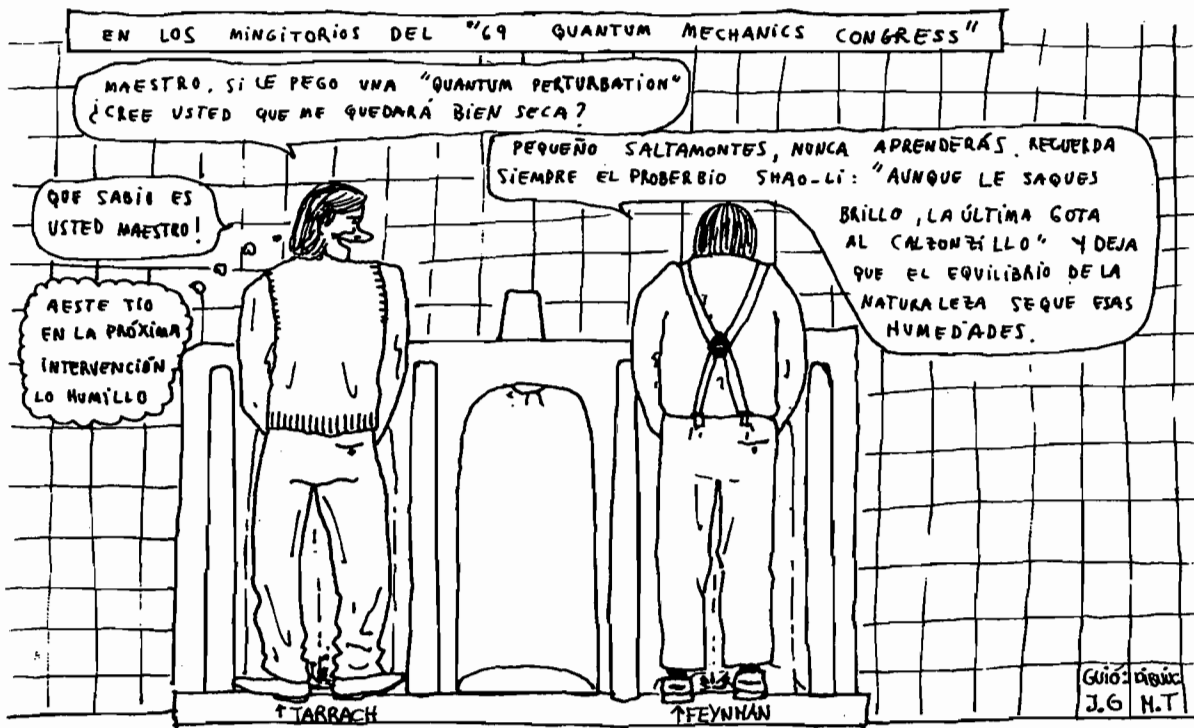 EN LOS MINGITORIOS DEL "69 QUANTUM MECHANICS CONGRESS"
MAESTRO, SI LE PEGO UNA "QUANTUM PERTURBATION"
¿CREE USTED QUE ME QUEDARÁ BIEN SECA?
PEQUEÑO SALTAMONTES, NUNCA APRENDERÁS. RECUERDA
SIEMPRE EL PROBERBIO SHAO-LI: "AUNQUE LE SAQUES
BRILLO, LA ÚLTIMA GOTA
AL CALZONZILLO" Y DEJA
QUE EL EQUILIBRIO DE LA
NATURALEZA SEQUE ESAS
HUMEDADES.
QUE SABIO ES
USTED MAESTRO!
A ESTE TÍO
EN LA PRÓXIMA
INTERVENCIÓN
LO HUMILLO
↑TARRACH
↑FEYNMAN
GUIÓ: DIBUIX
J.G M.T